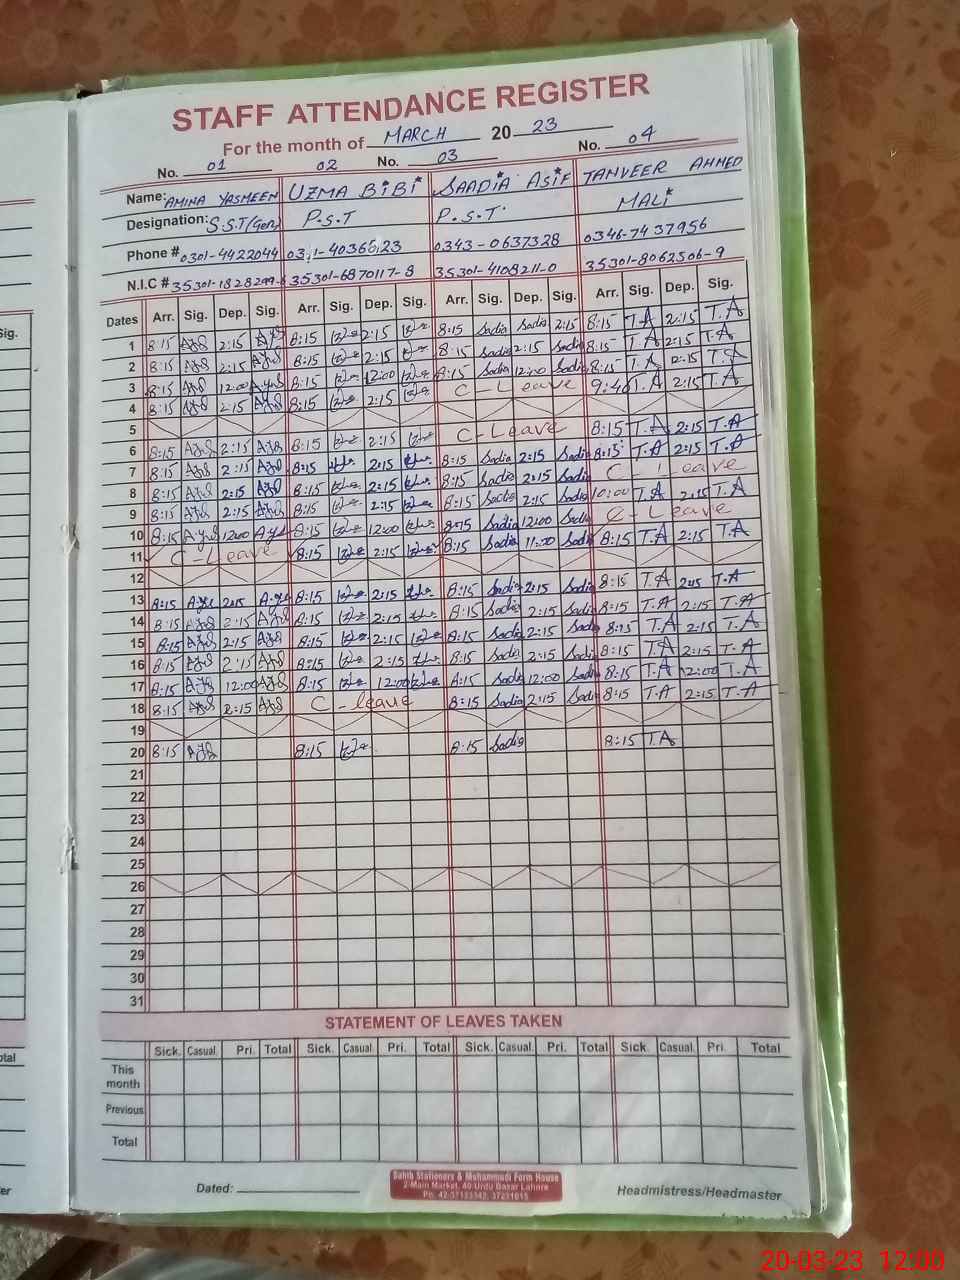 STAFF ATTENDANCE REGISTER
For the month of MARCH 20 23
No. 01 02 No. 03 No. 04
Name: AMINA YASMEEN UZMA BIBI SAADIA ASIF TANVEER AHMED
Designation: S.S.T(Gen) P.S.T P.S.T MALI
Phone # 0301-4422044 0343-0637328 0346-7437956
N.I.C # 35301-6870117-8 35301-4108211-0 35301-8062506-9
Dates Arr. Sig. Dep. Sig. Arr. Sig. Dep. Sig. Arr. Sig. Dep. Sig. Arr. Sig. Dep. Sig.
1 8:15 2:15 8:15 2:15 8:15 Sadia Sadia 2:15 8:15 T.A 2:15 T.A
2 8:15 2:15 8:15 2:15 8:15 Sadia 2:15 Sadia 8:15 T.A 2:15 T.A
3 8:15 12:00 8:15 12:00 8:15 Sadia 12:00 Sadia 8:15 T.A T.A
4 8:15 2:15 8:15 2:15 C-Leave 9:40 T.A 2:15 T.A
5
6 8:15 2:15 8:15 2:15 C-Leave 8:15 T.A 2:15 T.A
7 8:15 2:15 8:15 2:15 8:15 Sadia 2:15 Sadia 8:15 T.A 2:15 T.A
8 8:15 2:15 8:15 2:15 8:15 Sadia 2:15 Sadia C-Leave
9 8:15 2:15 8:15 2:15 8:15 Sadia 2:15 Sadia 10:00 T.A 2:15 T.A
10 8:15 12:00 8:15 12:00 8:15 Sadia 12:00 Sadia C-Leave
11 C-Leave 8:15 2:15 8:15 Sadia Sadia 8:15 T.A 2:15 T.A
12
13 8:15 2:15 8:15 2:15 8:15 Sadia 2:15 Sadia 8:15 T.A 2:15 T.A
14 8:15 2:15 8:15 2:15 8:15 Sadia 2:15 Sadia 8:15 T.A 2:15 T.A
15 8:15 2:15 8:15 2:15 8:15 Sadia 2:15 Sadia 8:15 T.A 2:15 T.A
16 8:15 2:15 8:15 2:15 8:15 Sadia 2:15 Sadia 8:15 T.A 2:15 T.A
17 8:15 12:00 8:15 12:00 8:15 Sadia 12:00 Sadia 8:15 T.A 12:00 T.A
18 8:15 2:15 C-leave 8:15 Sadia 2:15 Sadia 8:15 T.A 2:15 T.A
19
20 8:15 8:15 8:15 Sadia 8:15 T.A
21
22
23
24
25
26
27
28
29
30
31
STATEMENT OF LEAVES TAKEN
Sick. Casual. Pri. Total Sick. Casual. Pri. Total Sick. Casual. Pri. Total Sick. Casual. Pri. Total
This month
Previous
Total
Dated:
Sahib Stationers & Mohammadi Form House
2-Main Market, 40-Urdu Bazar Lahore
Headmistress/Headmaster
20-03-23 12:00